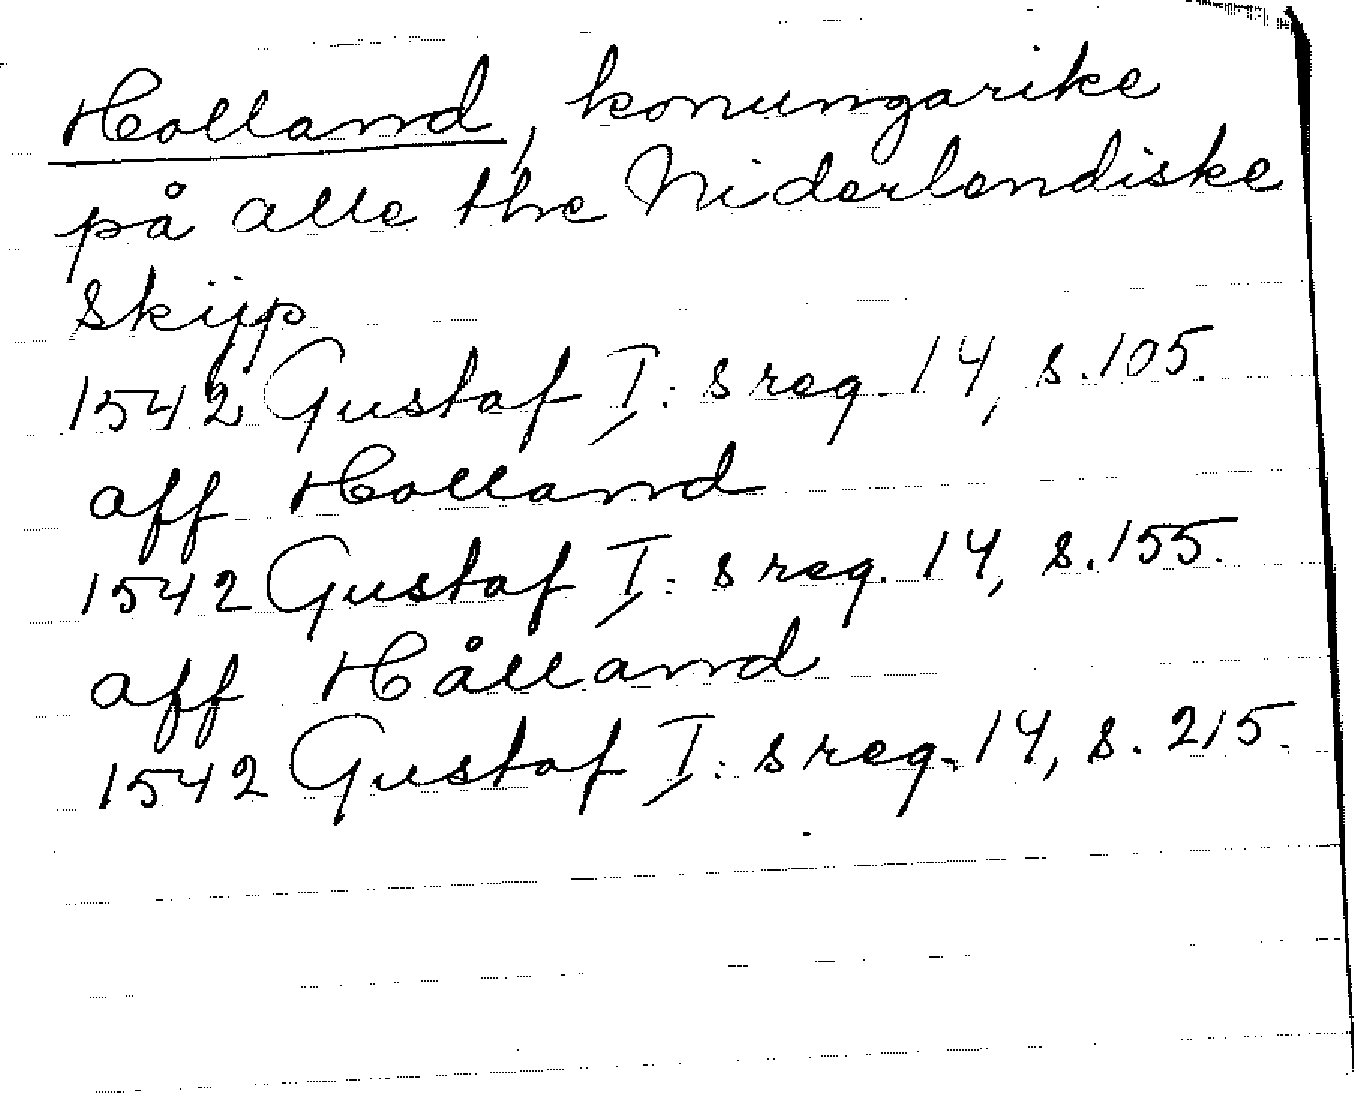 Holland, konungarike
på alle the Niderlendiske
skijp
1542 Gustaf I:s reg. 14, s.105.
aff Holland
1542 Gustaf I:s reg. 14, s.155.
aff Hålland
1542 Gustaf I:s reg. 14, s. 215.